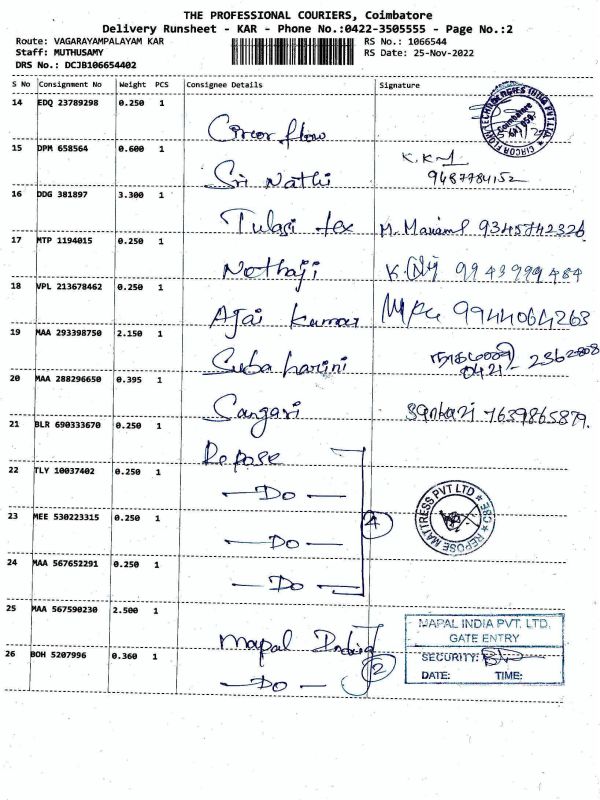 THE PROFESSIONAL COURIERS, Coimbatore
Delivery Runsheet - KAR - Phone No.:0422-3505555 - Page No.:2
Route: VAGARAYAMPALAYAM KAR RS No.: 1066544
Staff: MUTHUSAMY RS Date: 25-Nov-2022
DRS No.: DCJB106654402
S No Consignment No Weight PCS Consignee Details Signature
14 EDQ 23789298 0.250 1 Circor flow
CIRCOR FLOW TECHNOLOGIES INDIA PVT LTD
Coimbatore
15 DPM 658564 0.600 1 Sri Nathi 9487784152
16 DDG 381897 3.300 1 Tulasi tex M. 9345742326
17 MTP 1194015 0.250 1 Nethaji 9943999484
18 VPL 213678462 0.250 1 Ajai kumar 9944064263
19 MAA 293398750 2.150 1 Suba harini 0421-
20 MAA 288296650 0.395 1 Sangari 7639865879.
21 BLR 690333670 0.250 1 Repose
22 TLY 10037402 0.250 1 — Do —
REPOSE MATTRESS PVT LTD * CBE *
23 MEE 530223315 0.250 1 — Do — 4
24 MAA 567652291 0.250 1 — Do —
25 MAA 567590230 2.500 1 Mapal India
MAPAL INDIA PVT. LTD.
GATE ENTRY
26 BOH 5207996 0.360 1 — Do — 2
SECURITY:
DATE: TIME: